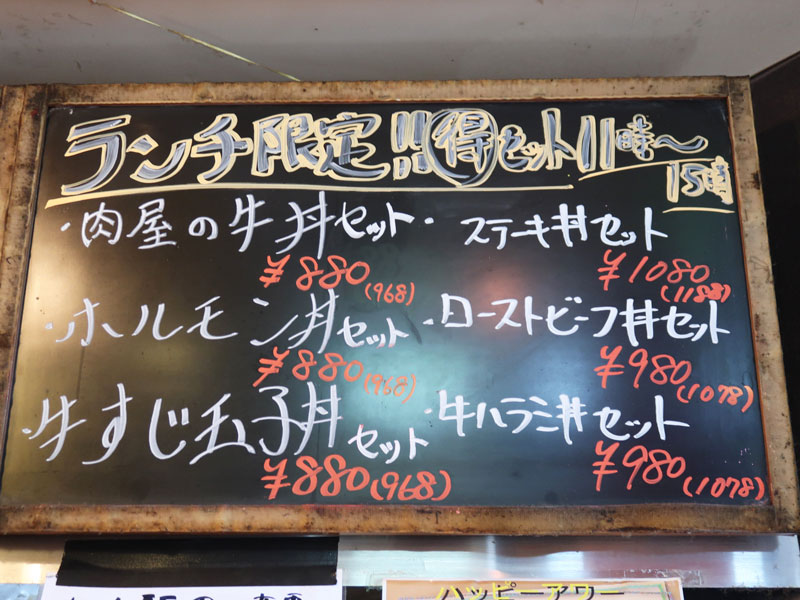 ランチ限定!!得セット11時〜
15時
・肉屋の牛丼セット
¥880(968)
・ホルモン丼セット
¥880(968)
・牛すじ玉子丼セット
¥880(968)
・ステーキ丼セット
¥1080(1188)
・ローストビーフ丼セット
¥980(1078)
・牛ハラミ丼セット
¥980(1078)
ハッピーアワー